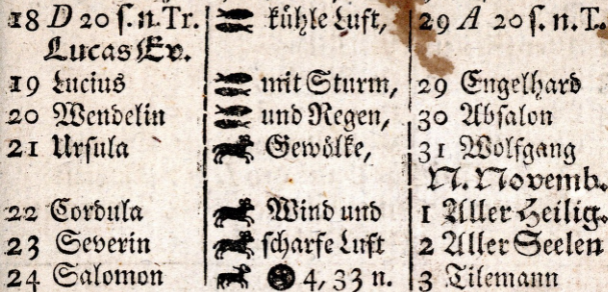 18 D 20 ſ. n. Tr. kühle Luft, 29 A 20 ſ. n. T.
Lucas Ev.
19 Lucius mit Sturm, 29 Engelhard
20 Wendelin und Regen, 30 Abſalon
21 Urſula Gewölke, 31 Wolfgang
N. Novemb.
22 Cordula Wind und 1 Aller Heilig.
23 Severin ſcharfe Luft 2 Aller Seelen
24 Salomon 4, 33 n. 3 Tilemann